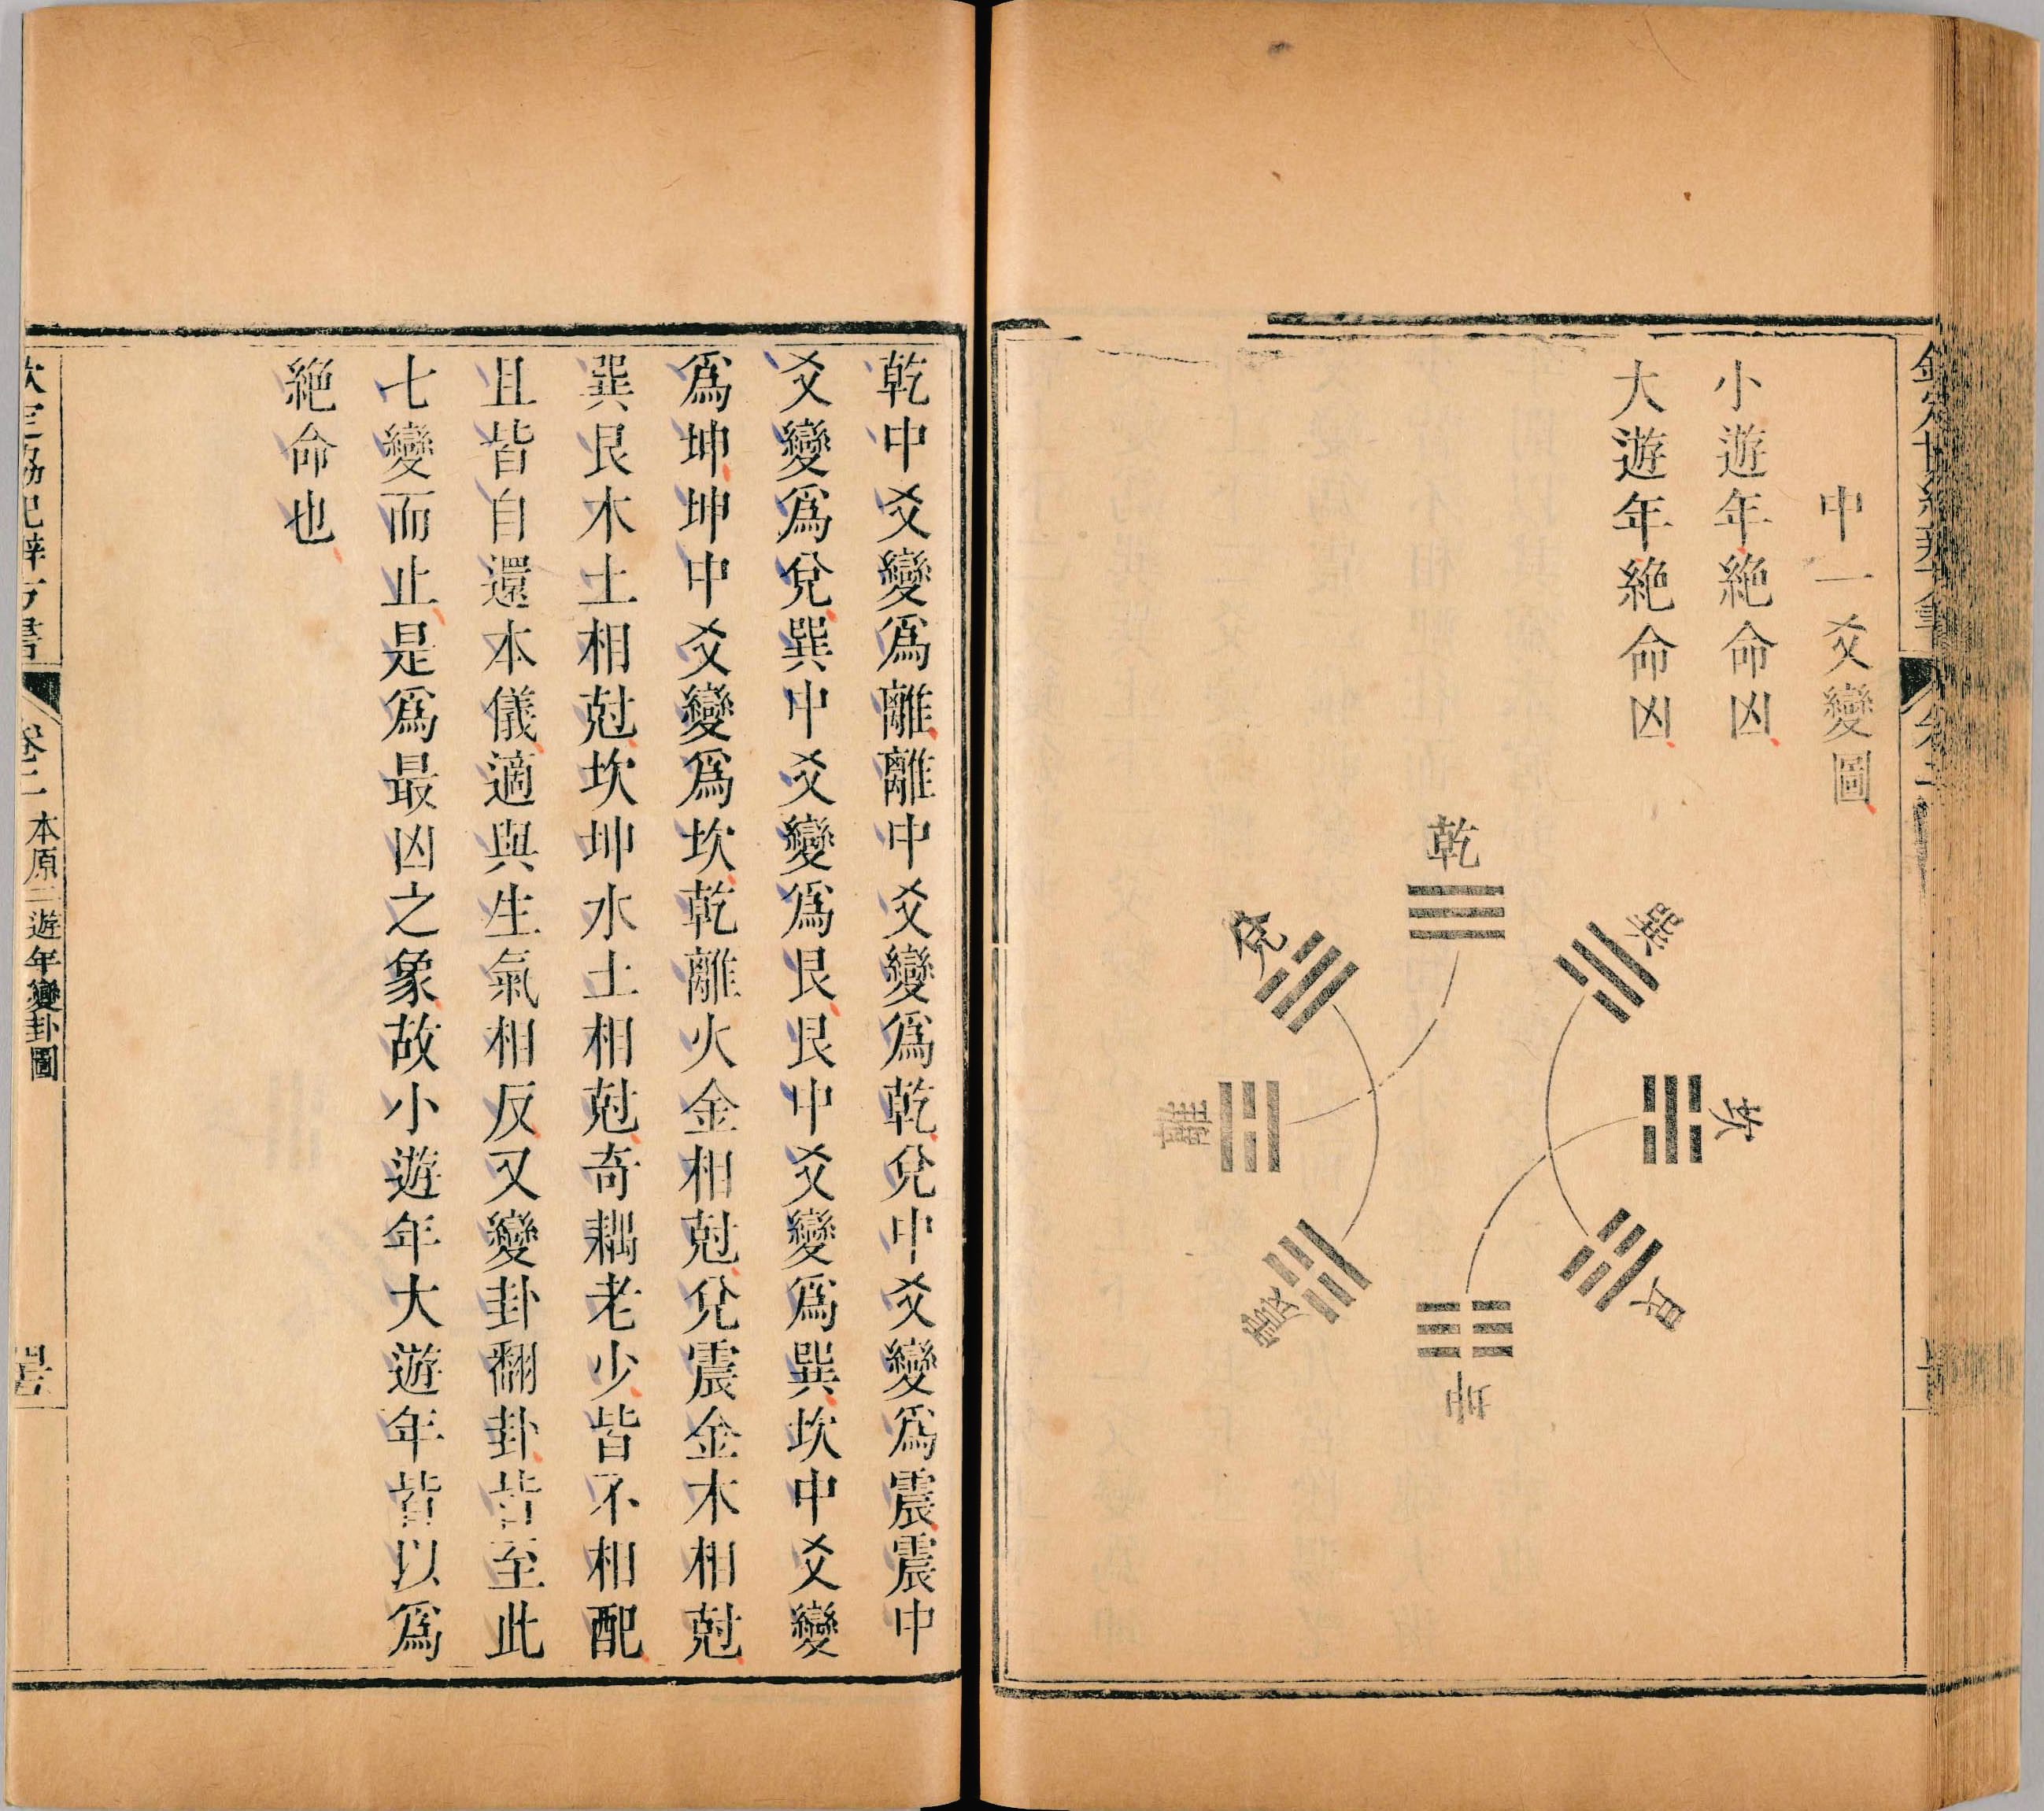 中一爻變圖
小遊年絶命凶
大遊年絶命凶
乾
兌
離
震
巽
坎
艮
坤
乾中爻變爲離離中爻變爲乾兌中爻變爲震震中
爻變爲兌巽中爻變爲艮艮中爻變爲巽坎中爻變
爲坤坤中爻變爲坎乾離火金相尅兌震金木相尅
巽艮木土相尅坎坤水土相尅奇耦老少皆不相配
且皆自還本儀適與生氣相反又變卦翻卦皆至此
七變而止是爲最凶之象故小遊年大遊年皆以爲
絶命也
卷二
本原二遊年變卦圖